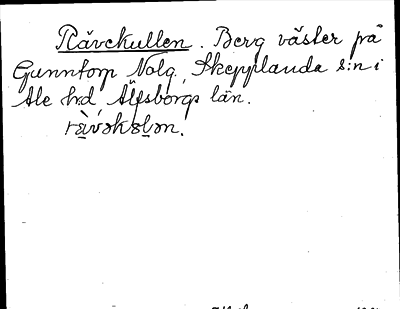 Rävekullen. Berg väster på
Gunntorp Nolg. Skepplanda s:n i
Ale hd, Älfsborgs län.
rä̀vəkɯlən.